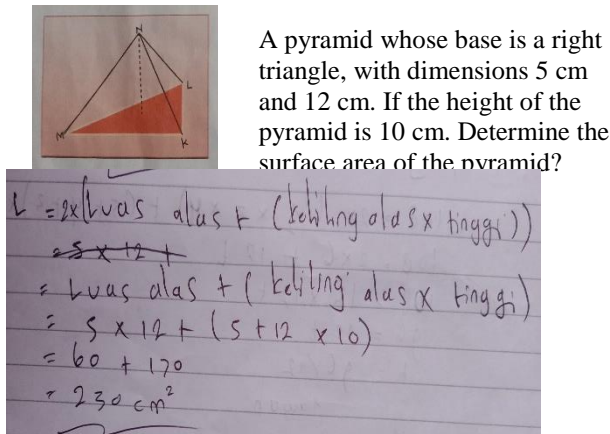 N
L
M
K
A pyramid whose base is a right
triangle, with dimensions 5 cm
and 12 cm. If the height of the
pyramid is 10 cm. Determine the
surface area of the pyramid?
L = 2x(Luas alas + (keliling alas x tinggi))
= 5 x 12 +
= Luas alas + ( keliling alas x tinggi)
= 5 x 12 + (5 + 12 x 10)
= 60 + 170
= 230 cm²